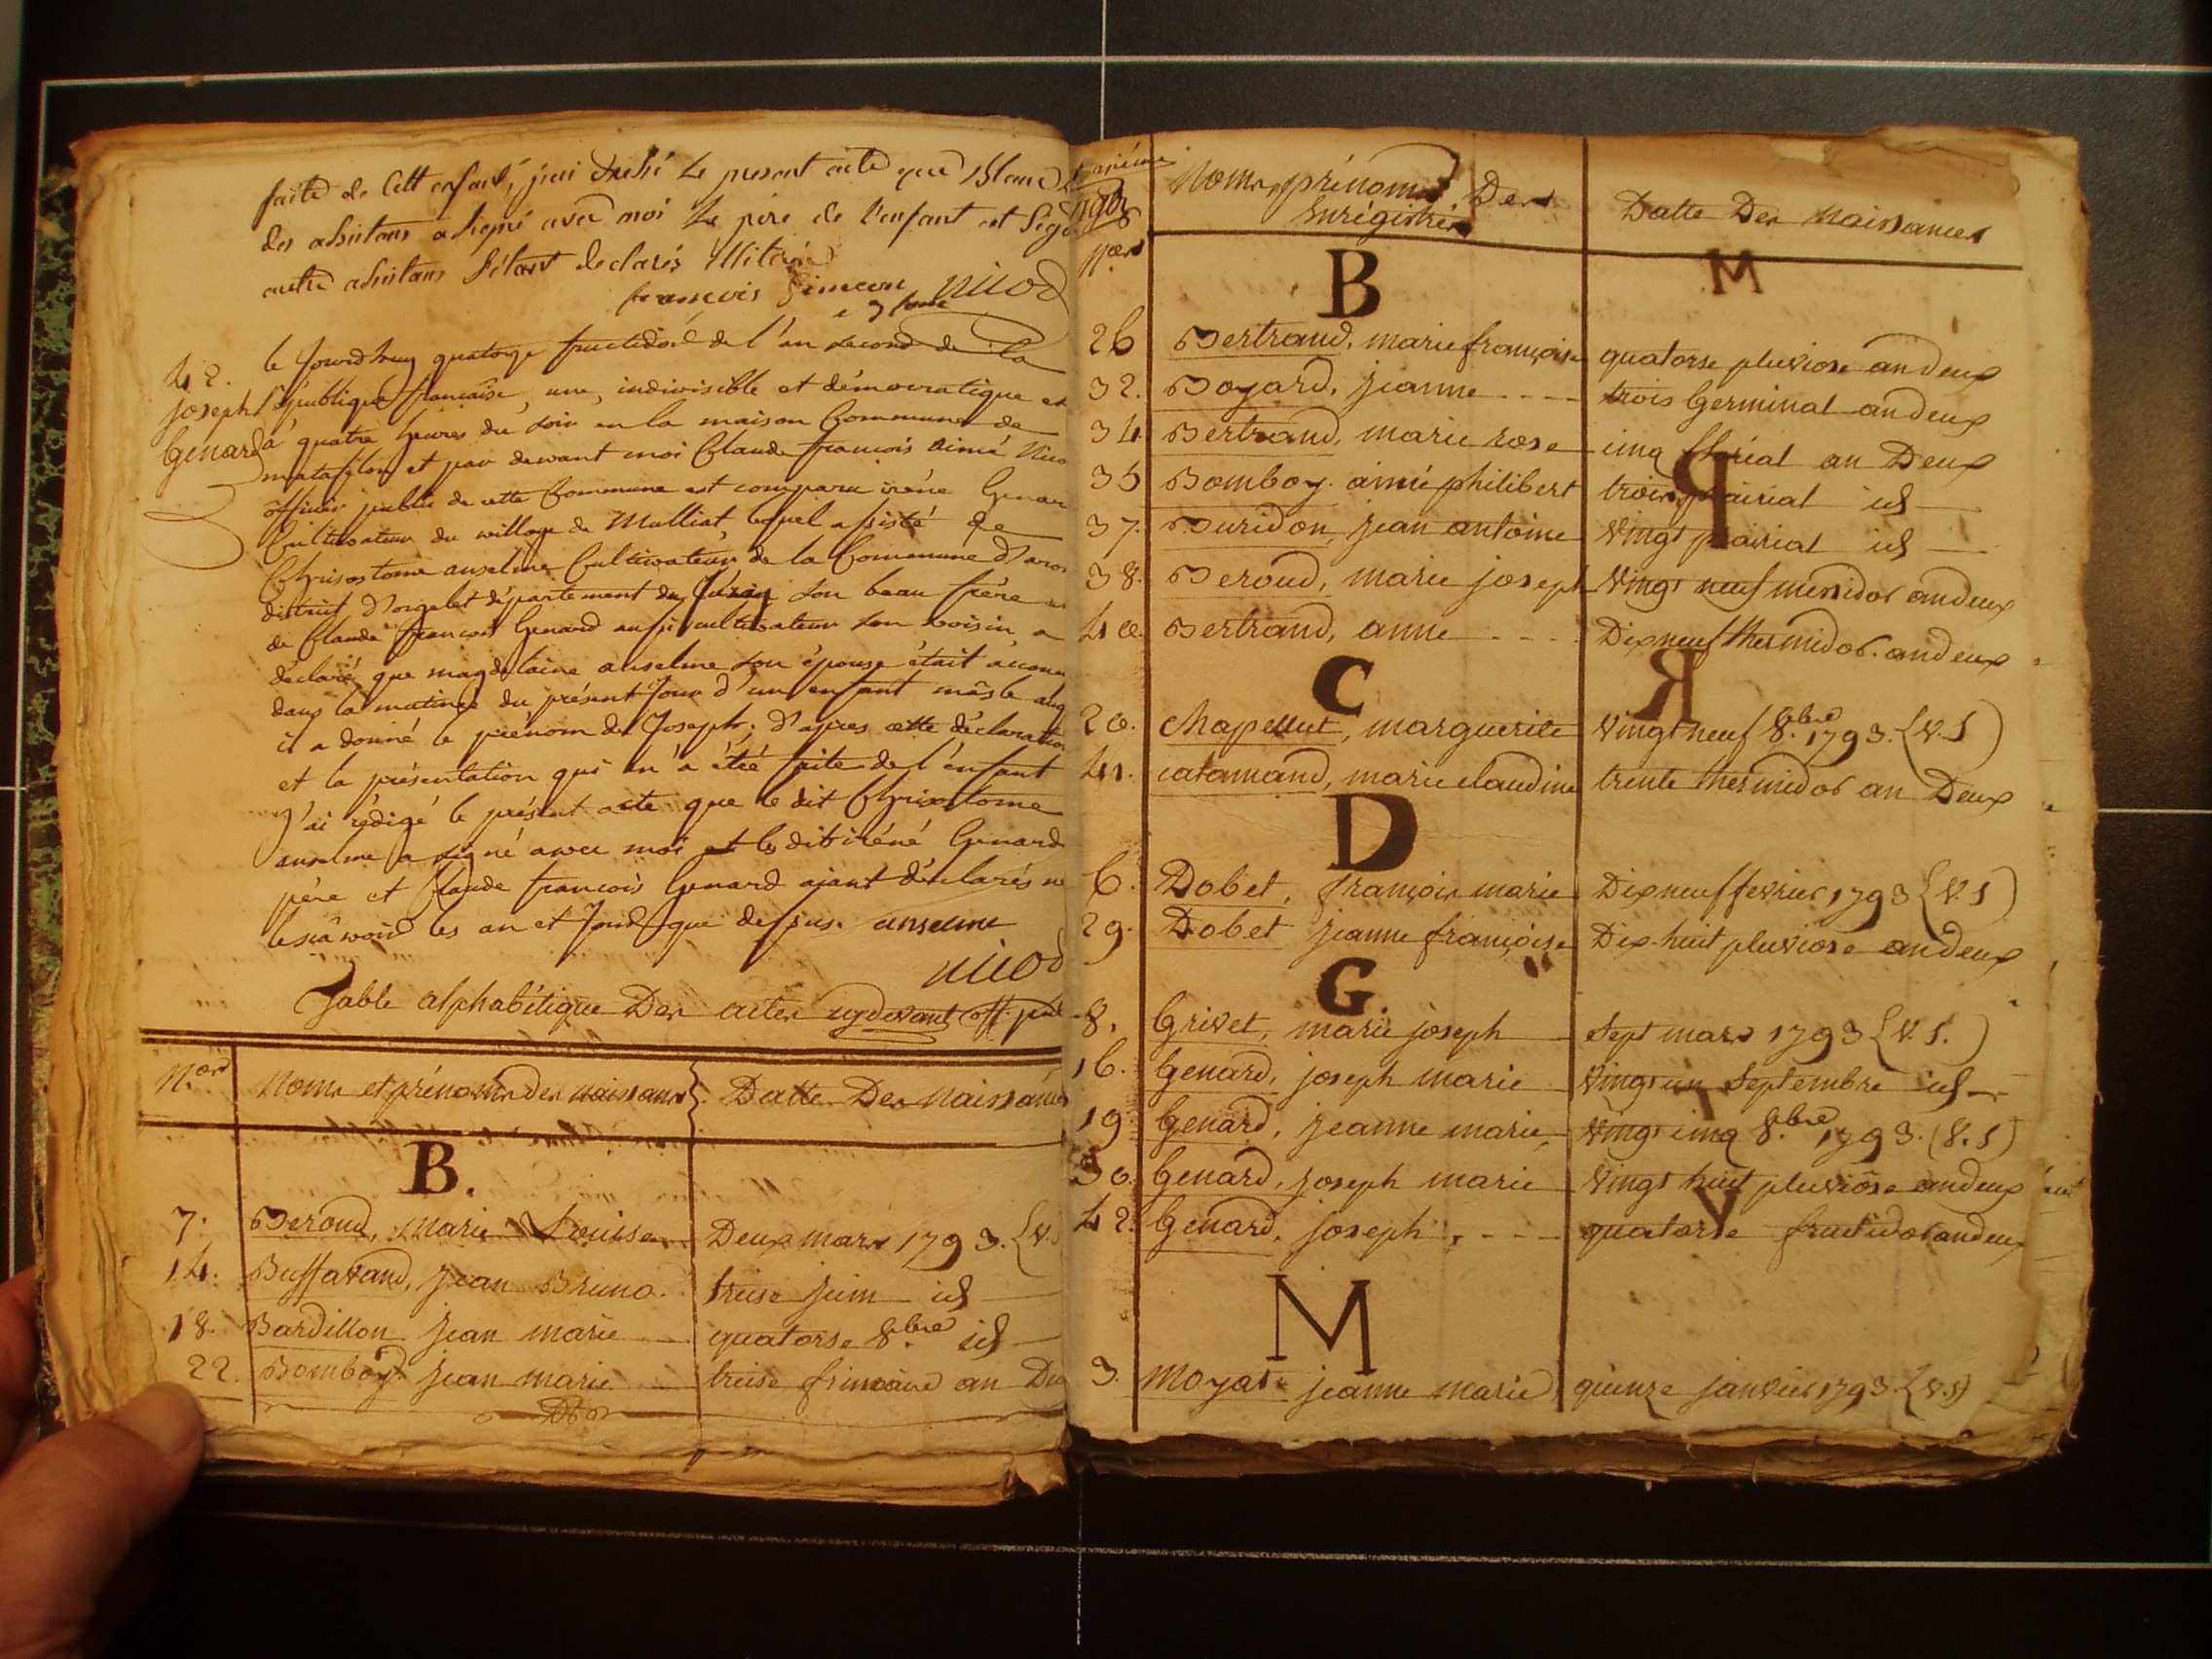 faite de Cett enfant, j'ai dressé Le present acte que Blanc
des assistans a signé avec moi Le père de l'enfant et
autre assistans S'étant declarés illiterés
françois nicod
42.
joseph
Genard
le Jourd'huy quatorze fructidor de l'an second de la
République francaise, une, indivisible et démocratique et
à quatre heures du soir en la maison Commune de
matafelon et par devant moi Claude françois aimé Nico
officier public de cette Commune est comparu iréné Genar
Cultivateur du village de Mulliat lequel assisté de
Chrisostome anselme Cultivateur de la Commune d'aro
district d'orgelet département du Jura son beau frère et
de Claude françois Genard aussi cultivateur son voisin a
déclaré que magdelaine anselme son épouse était accou
dans la matinée du présent Jour d'un enfant mâsle auq
il a donné le prénom de Joseph; d'apres cette déclaration
et la présentation qui m'a étée faite de l'enfant
J'ai rédigé le présent acte que le dit Chrisostome
anselme a signé avec moi et le dit iréné Genard
père et Claude françois Genard ajant déclarés ne
le sçavoir les an et Jour que dessus. anselme
nicod
Table alphabétique Des actes cydevant off. pub
N.os Noms et prénoms des naissans Datte Des Naissances
B.
7. Beroud, Marie Louise Deux mars 1793. (V.
14. Buffavand, Jean Bruno. treise juin id
18. Bardillon Jean marie quatorse 8.bre id
22. Bomboy Jean marie treise frimaire an De
N.os Noms, prénoms Des Enrégistrés Datte Des Naissances
B
26 Bertrand, marie françoise quatorse pluviose an deux
32. Boyard, jeanne trois Germinal an deux
34. Bertrand, marie rose cinq floréal an Deux
35 Bomboy aimé philibert trois prairial id
37. Buridon, jean antoine Vingt prairial id
38. Beroud, marie joseph Vingt neuf messidor an deux
40. Bertrand, anne Dix neuf thermidor an deux
C
20. Chapellut, marguerite Vingt neuf 8.bre 1793. (V.S)
41. catamand, marie claudine trente thermidor an Deux
D
6. Dobet, françois marie Dix neuf fevrier 1793 (V.S)
29. Dobet jeanne françoise Dix-huit pluviose an deux
G.
8. Grivet, marie joseph Sept mars 1793 (V.S.)
16. Genard, joseph marie Vingt un Septembre id
19 Genard, jeanne marie, Vingt cinq 8.bre 1793. (V.S)
30. Genard, joseph marie Vingt huit pluviôse an deux
42. Genard, joseph quatorse fructidor an deux
M
3. Moyat jeanne marie quinze janvier 1793. (V.S)